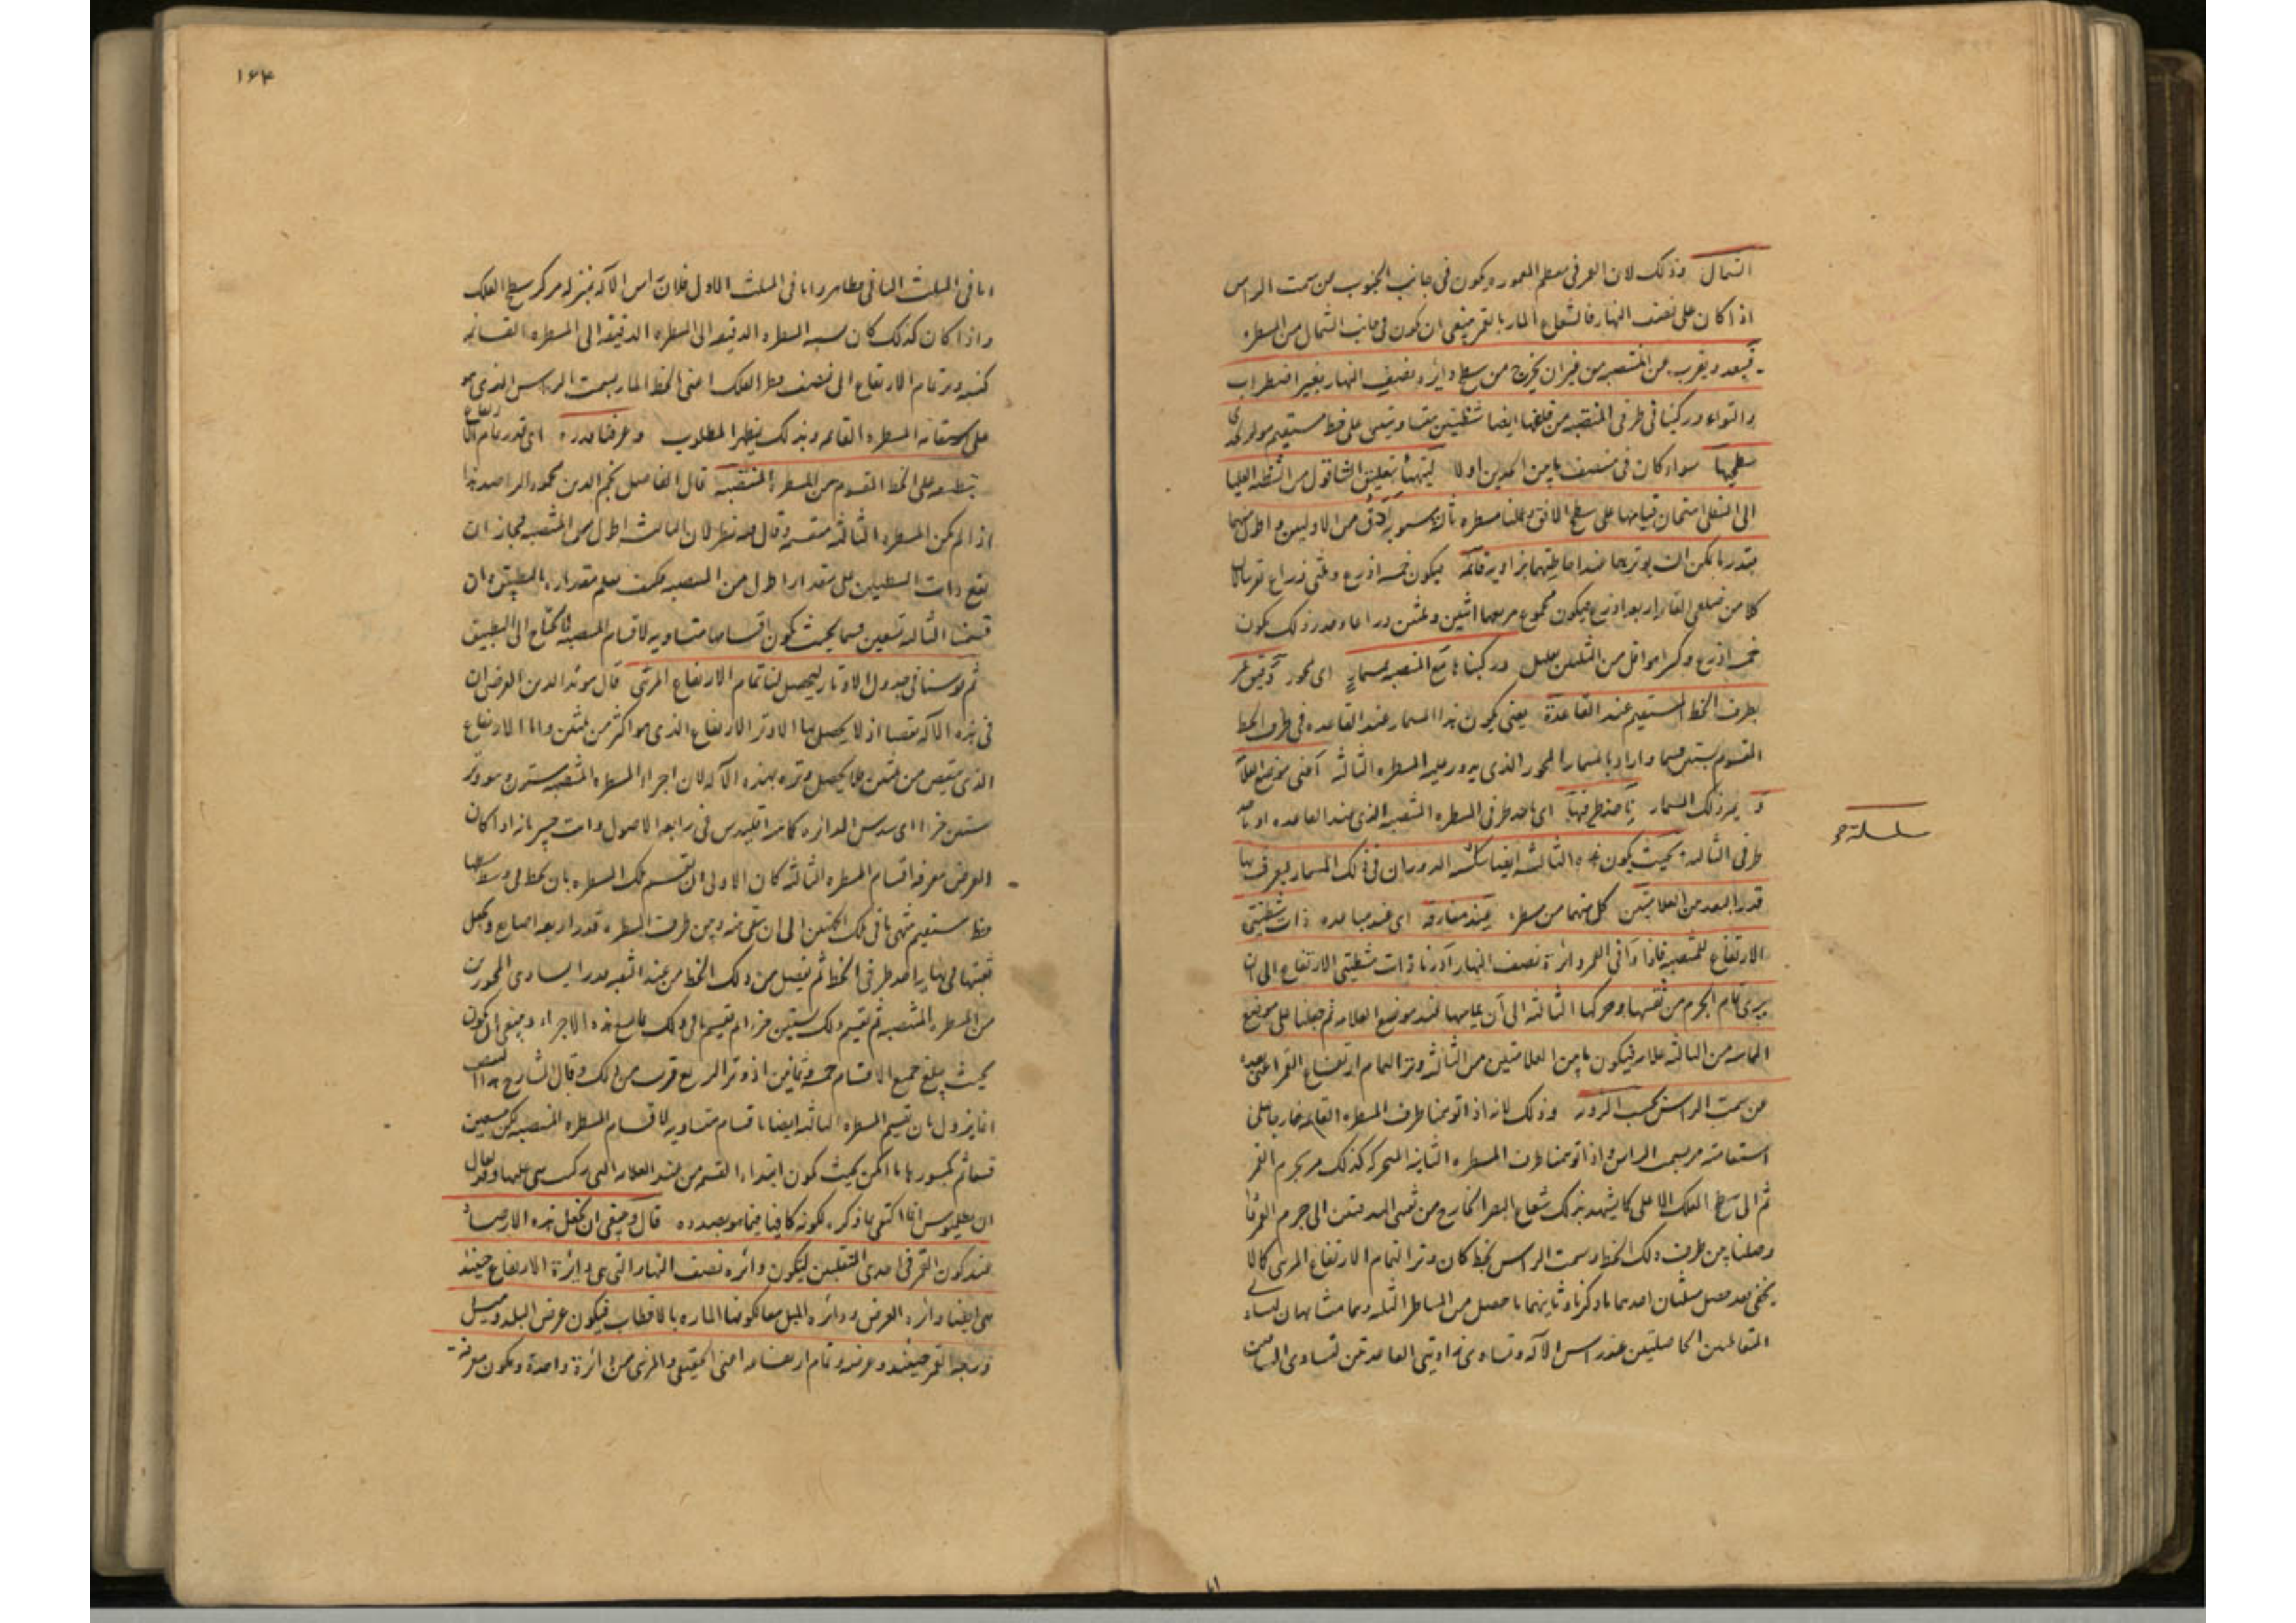 الشمال وذلك لان القمر في معظم المعموره يكون في جانب الجنوب من سمت الراس
اذا كان على نصف النهار فالشعاع المار بالقمر ينبغي ان يكون في جانب الشمال من المسطره
فيبعد ويقرب من المنتصبه من غير ان يخرج من سطح دايره نصف النهار بغير اضطراب
والتواء وركبنا في طرفي المنتصبه من خلفها ايضا شظيتين متساويتين على خط مستقيم مواز لحدى
سطحيها سواء كان في منتصف ما بين الحدين اولا ليتهيأ بتعليق الشاقول من الشظيه العليا
الى السفلى امتحان قيامها على سطح الافق وعملنا مسطره ثالثة مستويه ادق من الاوليين واطول منهما
بقدر ما يمكن ان يوترها عند احاطتهما بزاويه قائمه فيكون خمسه اذرع وثلثي ذراع تقريبا لان
كلا من ضلعي القائمه اربعه اذرع فيكون مجموع مربعهما اثنين وثلثين ذراعا وجذر ذلك يكون
خمسه اذرع وكسرا هو اقل من الثلثين بقليل وركبناها مع المنتصبه بمسمار اى محور دقيق
بطرف الخط المستقيم عند القاعدة يعني يكون هذا المسمار عند القاعده في طرف الخط
المقسوم بستين قسما واراد بالمسمار المحور الذى يدور عليه المسطره الثالثه اعني موضع العلامه
يمر ذلك المسمار باحد طرفيها اى باحد طرفي المسطره المنتصبه الذى عند القاعده او باحد
طرفي الثالثه بحيث يكون هذه الثالثه ايضا سلسة الدوران في ذلك المسمار ليعرف بها
سلسة
قدر البعد من العلامتين كل منهما من مسطره عند مفارقه اى عند مباعده ذات شظيتي
الارتفاع للمنتصبه فاذا وافى القمر دائرة نصف النهار ادرنا ذات شظيتي الارتفاع الى ان
يرى تمام الجرم من ثقبيها وحركنا الثالثه الى ان يماسها عند موضع العلامه ثم جعلنا على موضع
المماسه من الثالثه علامه فيكون ما بين العلامتين من الثالثه وتر التمام ارتفاع القمر اعني بعده
من سمت الراس بحسب الرويه وذلك لانه اذا توهمنا طرف المسطره القايمه خارجا على
استقامته مر بسمت الراس واذا توهمنا طرف المسطره الثانيه المتحركه كذلك مر بجرم القمر
ثم الى سطح الفلك الاعلى كما يشهد بذلك شعاع البصر الخارج من ثقبي الهدفتين الى جرم القمر فاذا
وصلنا بين طرف ذلك الخط وسمت الراس بخط كان وترا لتمام الارتفاع المرئي كما لا
يخفى فقد حصل مثلثان احدهما ما ذكرنا وثانيهما ما حصل من المساطر الثلثه وهما متشابهان لتساوي
المتقابلتين الحاصلتين عند راس الآله وتساوى زاويتي القاعدتين لتساوى الساقين
١٦٤
اما في المثلث الثاني فظاهر واما في المثلث الاول فلان راس الآله بمنزله مركز سطح الفلك
واذا كان كذلك كان نسبه المسطره الدقيقه الى المسطره القائمه
كنسبه وتر تمام الارتفاع الى نصف قطر الفلك اعني الخط المار بسمت الراس الذى هو
على استقامه المسطره القائمه وبذلك يظهر المطلوب وعرفنا قدره اى قدر تمام الارتفاع
بتطبيقه على الخط المقسوم من المسطره المنتصبه قال الفاضل نجم الدين محمود الراصد هذا
اذا لم يكن المسطره الثالثه منقسمه وقال فيه نظر لان الثالثه اطول من المنتصبه فجاز ان
يقع ذات الشظيتين على مقدار اطول من المنتصبه فكيف يعلم مقداره بالتطبيق وان
قسمنا الثالثه تسعين قسما بحيث يكون اقسامها متساويه لاقسام المنتصبه فلا نحتاج الى التطبيق
ثم قوسنا في جدول الاوتار ليحصل لنا تمام الارتفاع المرئي قال مؤيد الدين العرضي ان
في هذه الآله نقصا اذ لا يحصل بها الا وتر الارتفاع الذى هو اكثر من ثلثين واما الارتفاع
الذى ينقص من ثلثين فلا يحصل وتره بهذه الآله لان اجزاء المسطره المنتصبه ستون وهو وتر
ستين جزءا اى سدس الدائره كما ذكر اقليدس في رابعه الاصول وانت خبير بانه اذا كان
الغرض معرفه اقسام المسطره الثالثه كان الاولى ان تقسم تلك المسطره بان يخط في وسطها
خط مستقيم ينتهي الى ان يبقى منه وبين طرف المسطره قدر اربعه اصابع ويجعل
ثقبتها في نهايه احد طرفي الخط ثم يفصل من ذلك الخط من عند الثقبه قدر ايساوى المحورين
من المسطره المنتصبه ثم يقسم ذلك بستين جزءا ثم يقسم باقي ذلك بهذه الاجزاء وينبغي ان يكون
بحيث يبلغ جميع الاقسام خمسه وثمانين اذ وتر الربع قريب من ذلك وقال الشارح هذا النقص
انما يزول بان يقسم المسطره الثالثه ايضا باقسام متساويه لاقسام المسطره المنتصبه لكن تسعين
قسما ثم بكسورها ما امكن بحيث يكون ابتداء القسمه من عند العلامه التي ركبت هي عليها وقد يقال
ان بطلميوس انما اكتفى بما ذكره لكونه كافيا فيما هو بصدده قال وينبغي ان نجعل هذه الارصاد
عند كون القمر في احدى المنقلبين ليكون دائره نصف النهار التي هي دايرة الارتفاع حينئذ
هي ايضا دائره العرض ودائره الميل معا لكونها الماره بالاقطاب فيكون عرض البلد وميل
درجه القمر حينئذ وعرضه وتمام ارتفاعه اعني الحقيقي والمرئي من دائرة واحدة ويكون معرفة